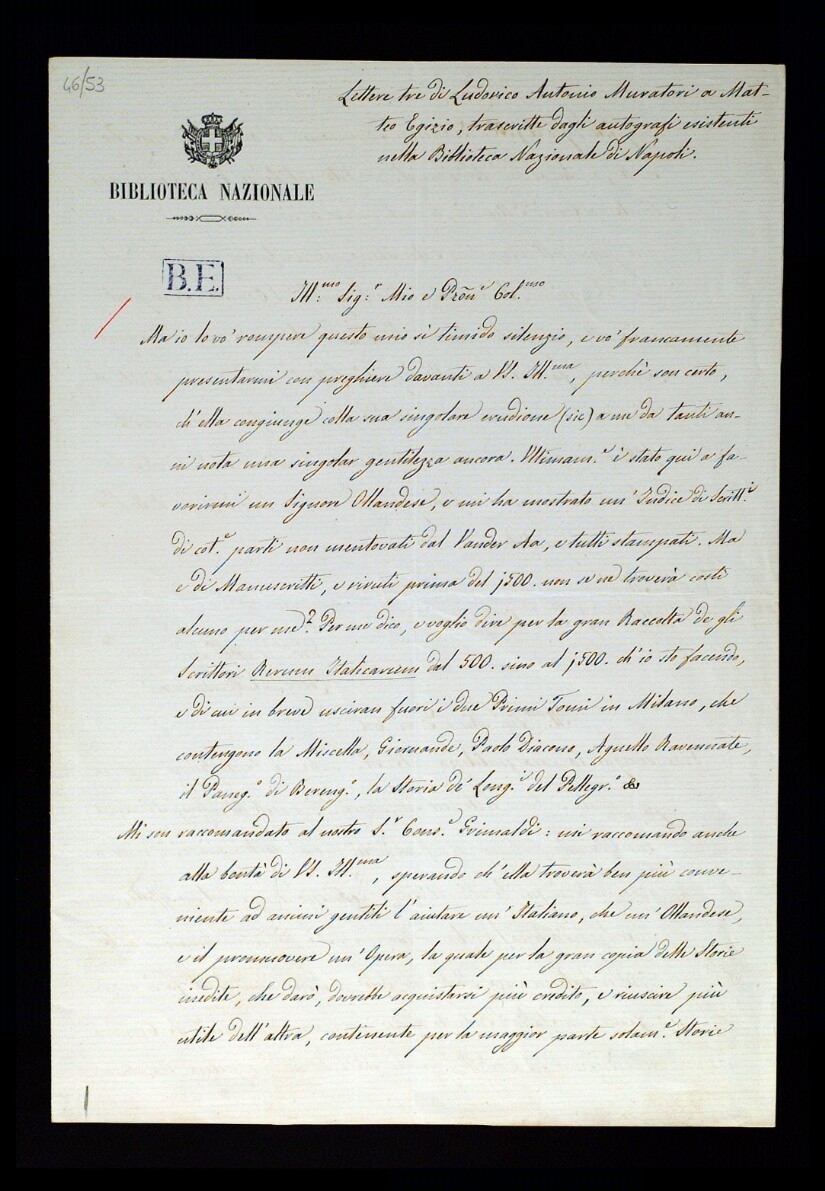 46/53
Lettere tre di Ludovico Antonio Muratori a Mat-
teo Egizio, trascritte dagli autografi esistenti
nella Biblioteca Nazionale di Napoli.
BIBLIOTECA NAZIONALE
B.E.
Ill:mo Sig:r Mio e Pron̄e Col.mo
Ma io lo vo' rompere questo mio sì timido silenzio, e vo' francamente
presentarmi con preghiere davanti a VS. Ill.ma, perchè son certo,
ch'ella congiunge colla sua singolare erudione (sic) a me da tanti an-
ni nota una singolar gentilezza ancora. Ultimam.e è stato qui a fa-
vorirmi un Signore Ollandese, e mi ha mostrato un' Indice di Scritt.i
di cot.e parti non mentovati dal Vander Aa, e tutti stampati. Ma
e di Manuscritti, e vivuti prima del 1500. non se ne troverà costì
alcuno per me? Per me dico, e voglio dire per la gran Raccolta de gli
Scrittori Rerum Italicarum dal 500. sino al 1500. ch'io sto facendo,
e di cui in breve usciran fuori i due Primi Tomi in Milano, che
contengono la Miscella, Giornande, Paolo Diacono, Agnello Ravennate,
il Paneg.o di Bereng.o, la Storia de' Long.i del Pellegr.o &
Mi son raccomandato al nostro S.r Cons.e Grimaldi: mi raccomando anche
alla bontà di VS. Ill.ma, sperando ch'ella troverà ben più conve-
niente ad animi gentili l'aiutare un' Italiano, che un' Ollandese,
e il promuovere un' Opera, la quale per la gran copia delle Storie
inedite, che darò, dovrebbe acquistarsi più credito, e riuscire più
utile dell'altra, contenente per la maggior parte solam.e Storie